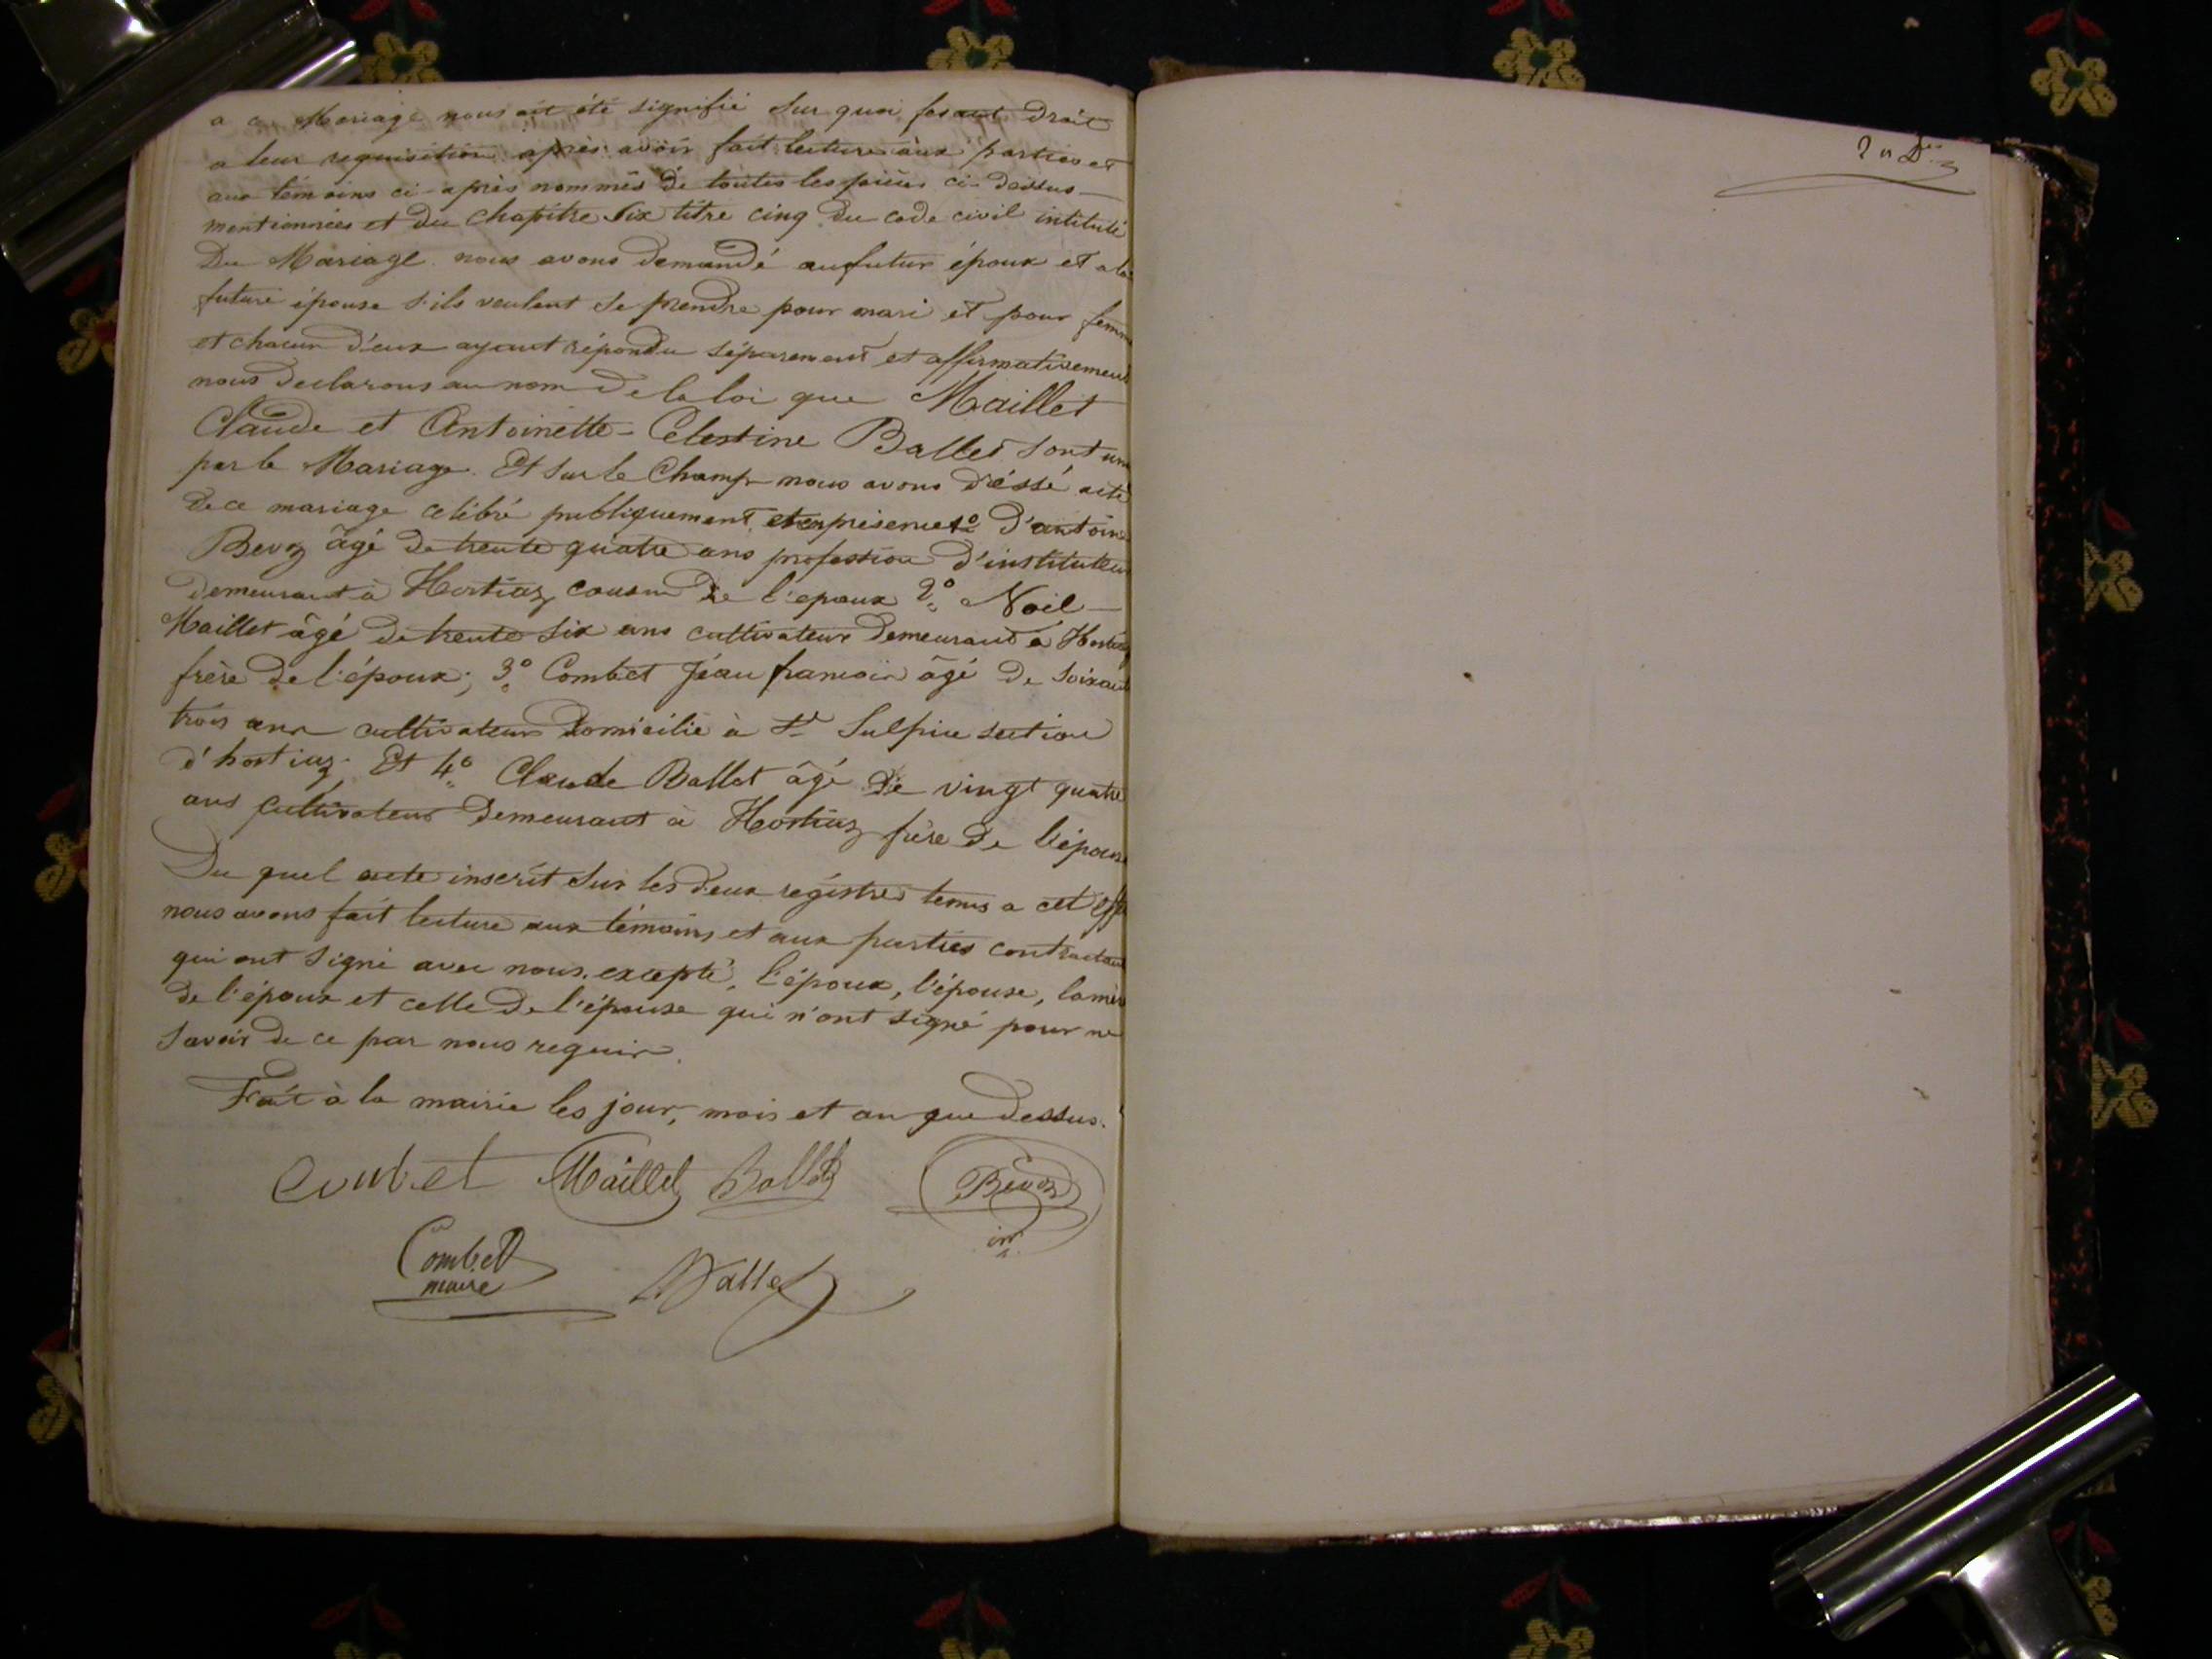 a ce Mariage nous ait été signifié Sur quoi fesant Droit
a leur requisition après avoir fait lecture aux parties et
aux témoins ci-après nommés de toutes les pièces ci-dessus
mentionnées et du chapitre Six titre cinq du code civil intitulé
Du Mariage nous avons demandé au futur époux et a la
future épouse s'ils veulent se prendre pour mari et pour femme
et chacun d'eux ayant répondu séparement et affirmativement
nous declarons au nom de la loi que Maillet
Claude et Antoinette-Celestine Ballet sont unis
par le Mariage. Et sur le Champ nous avons d'éssé acte
de ce mariage celébré publiquement et en présence 1º D'antoine
Bevoz âgé de trente quatre ans profession d'instituteur
demeurant à Hortiaz cousin de l'epoux 2º Noël
Maillet âgé de trente six ans cultivateur demeurant à Hortiaz
frère de l'époux; 3º Combet Jéan francois âgé de Soixante
trois ans cultivateur domicilié à St Sulpice section
d'hortiaz. Et 4º Claude Ballet âgé de vingt quatre
ans cultivateur demeurant à Hortiaz frère de l'épouse
Du quel acte inscrit sur les deux registres tenus a cet effet
nous avons fait lecture aux témoins et aux parties contractantes
qui ont signé avec nous. excepté, l'époux, l'épouse, la mère
de l'époux et celle de l'épouse qui n'ont signé pour ne
savoir de ce par nous requis.
Fait à la mairie les jour, mois et an que dessus.
Combet Maillet Ballet Bevoz
in
Combet Ballet
maire